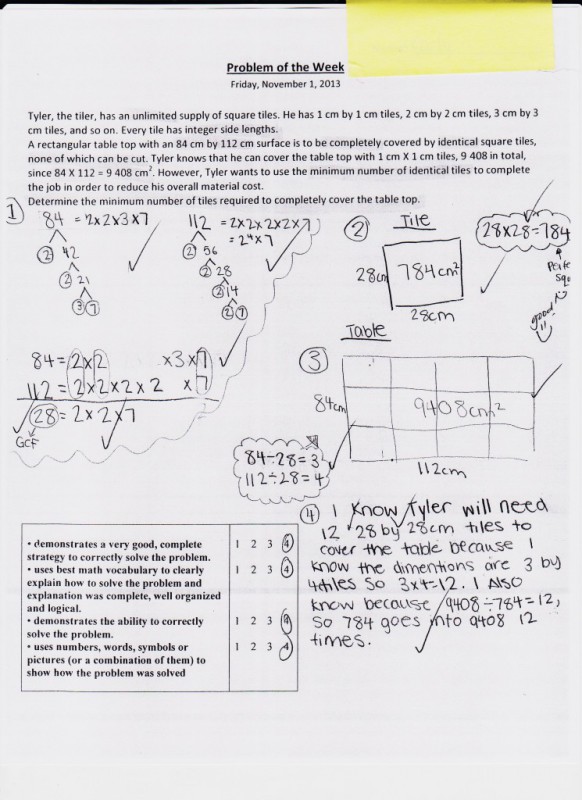 Problem of the Week
Friday, November 1, 2013
Tyler, the tiler, has an unlimited supply of square tiles. He has 1 cm by 1 cm tiles, 2 cm by 2 cm tiles, 3 cm by 3
cm tiles, and so on. Every tile has integer side lengths.
A rectangular table top with an 84 cm by 112 cm surface is to be completely covered by identical square tiles,
none of which can be cut. Tyler knows that he can cover the table top with 1 cm X 1 cm tiles, 9 408 in total,
since 84 X 112 = 9 408 cm². However, Tyler wants to use the minimum number of identical tiles to complete
the job in order to reduce his overall material cost.
Determine the minimum number of tiles required to completely cover the table top.
1
84 = 2x2x3x7
2 42
2 21
3 7
112 = 2x2x2x2x7
= 2⁴x7
2 56
2 28
2 14
2 7
84 = 2x2 x3x7
112 = 2x2x2x2 x7
28 = 2x2x7
GCF
2 Tile
28cm 784cm²
28cm
28x28=784
good!!
Table
3
84cm 9408cm²
112cm
84÷28=3
112÷28=4
4 I know Tyler will need
12 28 by 28cm tiles to
cover the table because I
know the dimentions are 3 by
4tiles so 3x4=12. I Also
know because 9408÷784=12,
so 784 goes into 9408 12
times.
• demonstrates a very good, complete
strategy to correctly solve the problem.
1 2 3 4
• uses best math vocabulary to clearly
explain how to solve the problem and
explanation was complete, well organized
and logical.
1 2 3 4
• demonstrates the ability to correctly
solve the problem.
1 2 3 4
• uses numbers, words, symbols or
pictures (or a combination of them) to
show how the problem was solved
1 2 3 4